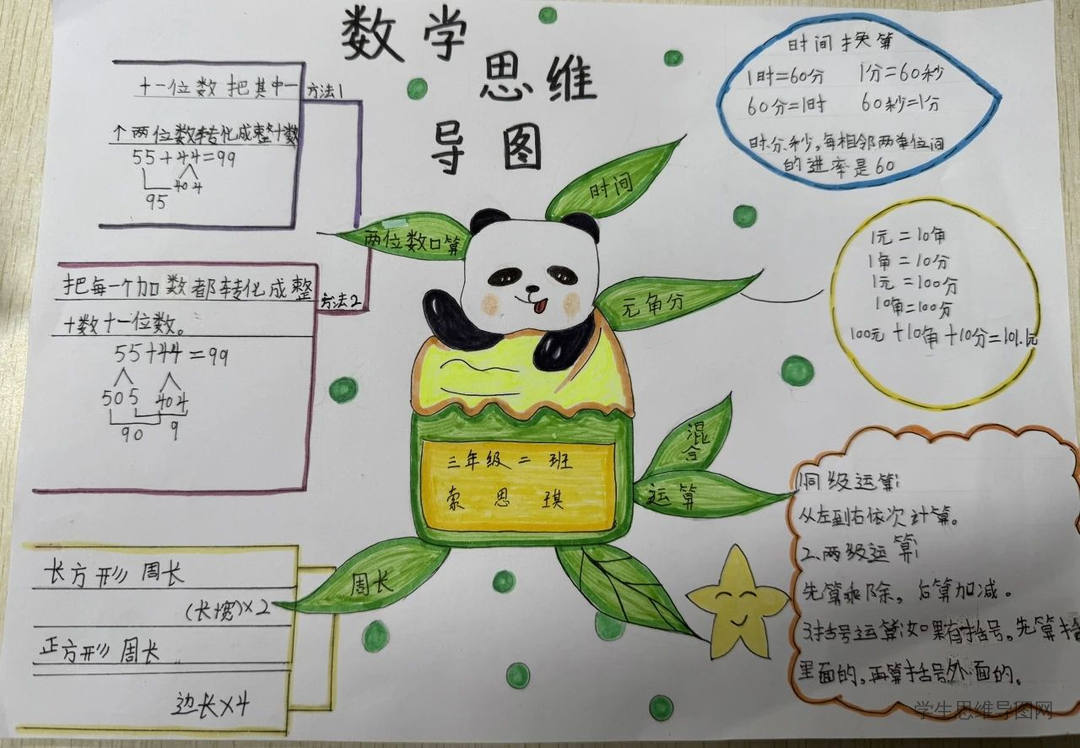 数学
思维
导图
十一位数 把其中一
方法1
个两位数转化成整十数
55+44=99
40 4
95
两位数口算
把每一个加数都转化成整
方法2
十数十一位数。
55+44=99
50 5 40 4
90 9
长方形 周长
(长宽)×2
正方形 周长
边长×4
周长
时间
元角分
混合
运算
三年级二班
蒙思琪
时间换算
1时=60分 1分=60秒
60分=1时 60秒=1分
时分秒,每相邻两单位间
的进率是60
1元=10角
1角=10分
1元=100分
10角=100分
100元+10角+10分=101.1元
1同级运算
从左到右依次计算。
2.两级运算
先算乘除,后算加减。
3括号运算如果有括号。先算括
里面的,再算括号外面的。
学生思维导图网